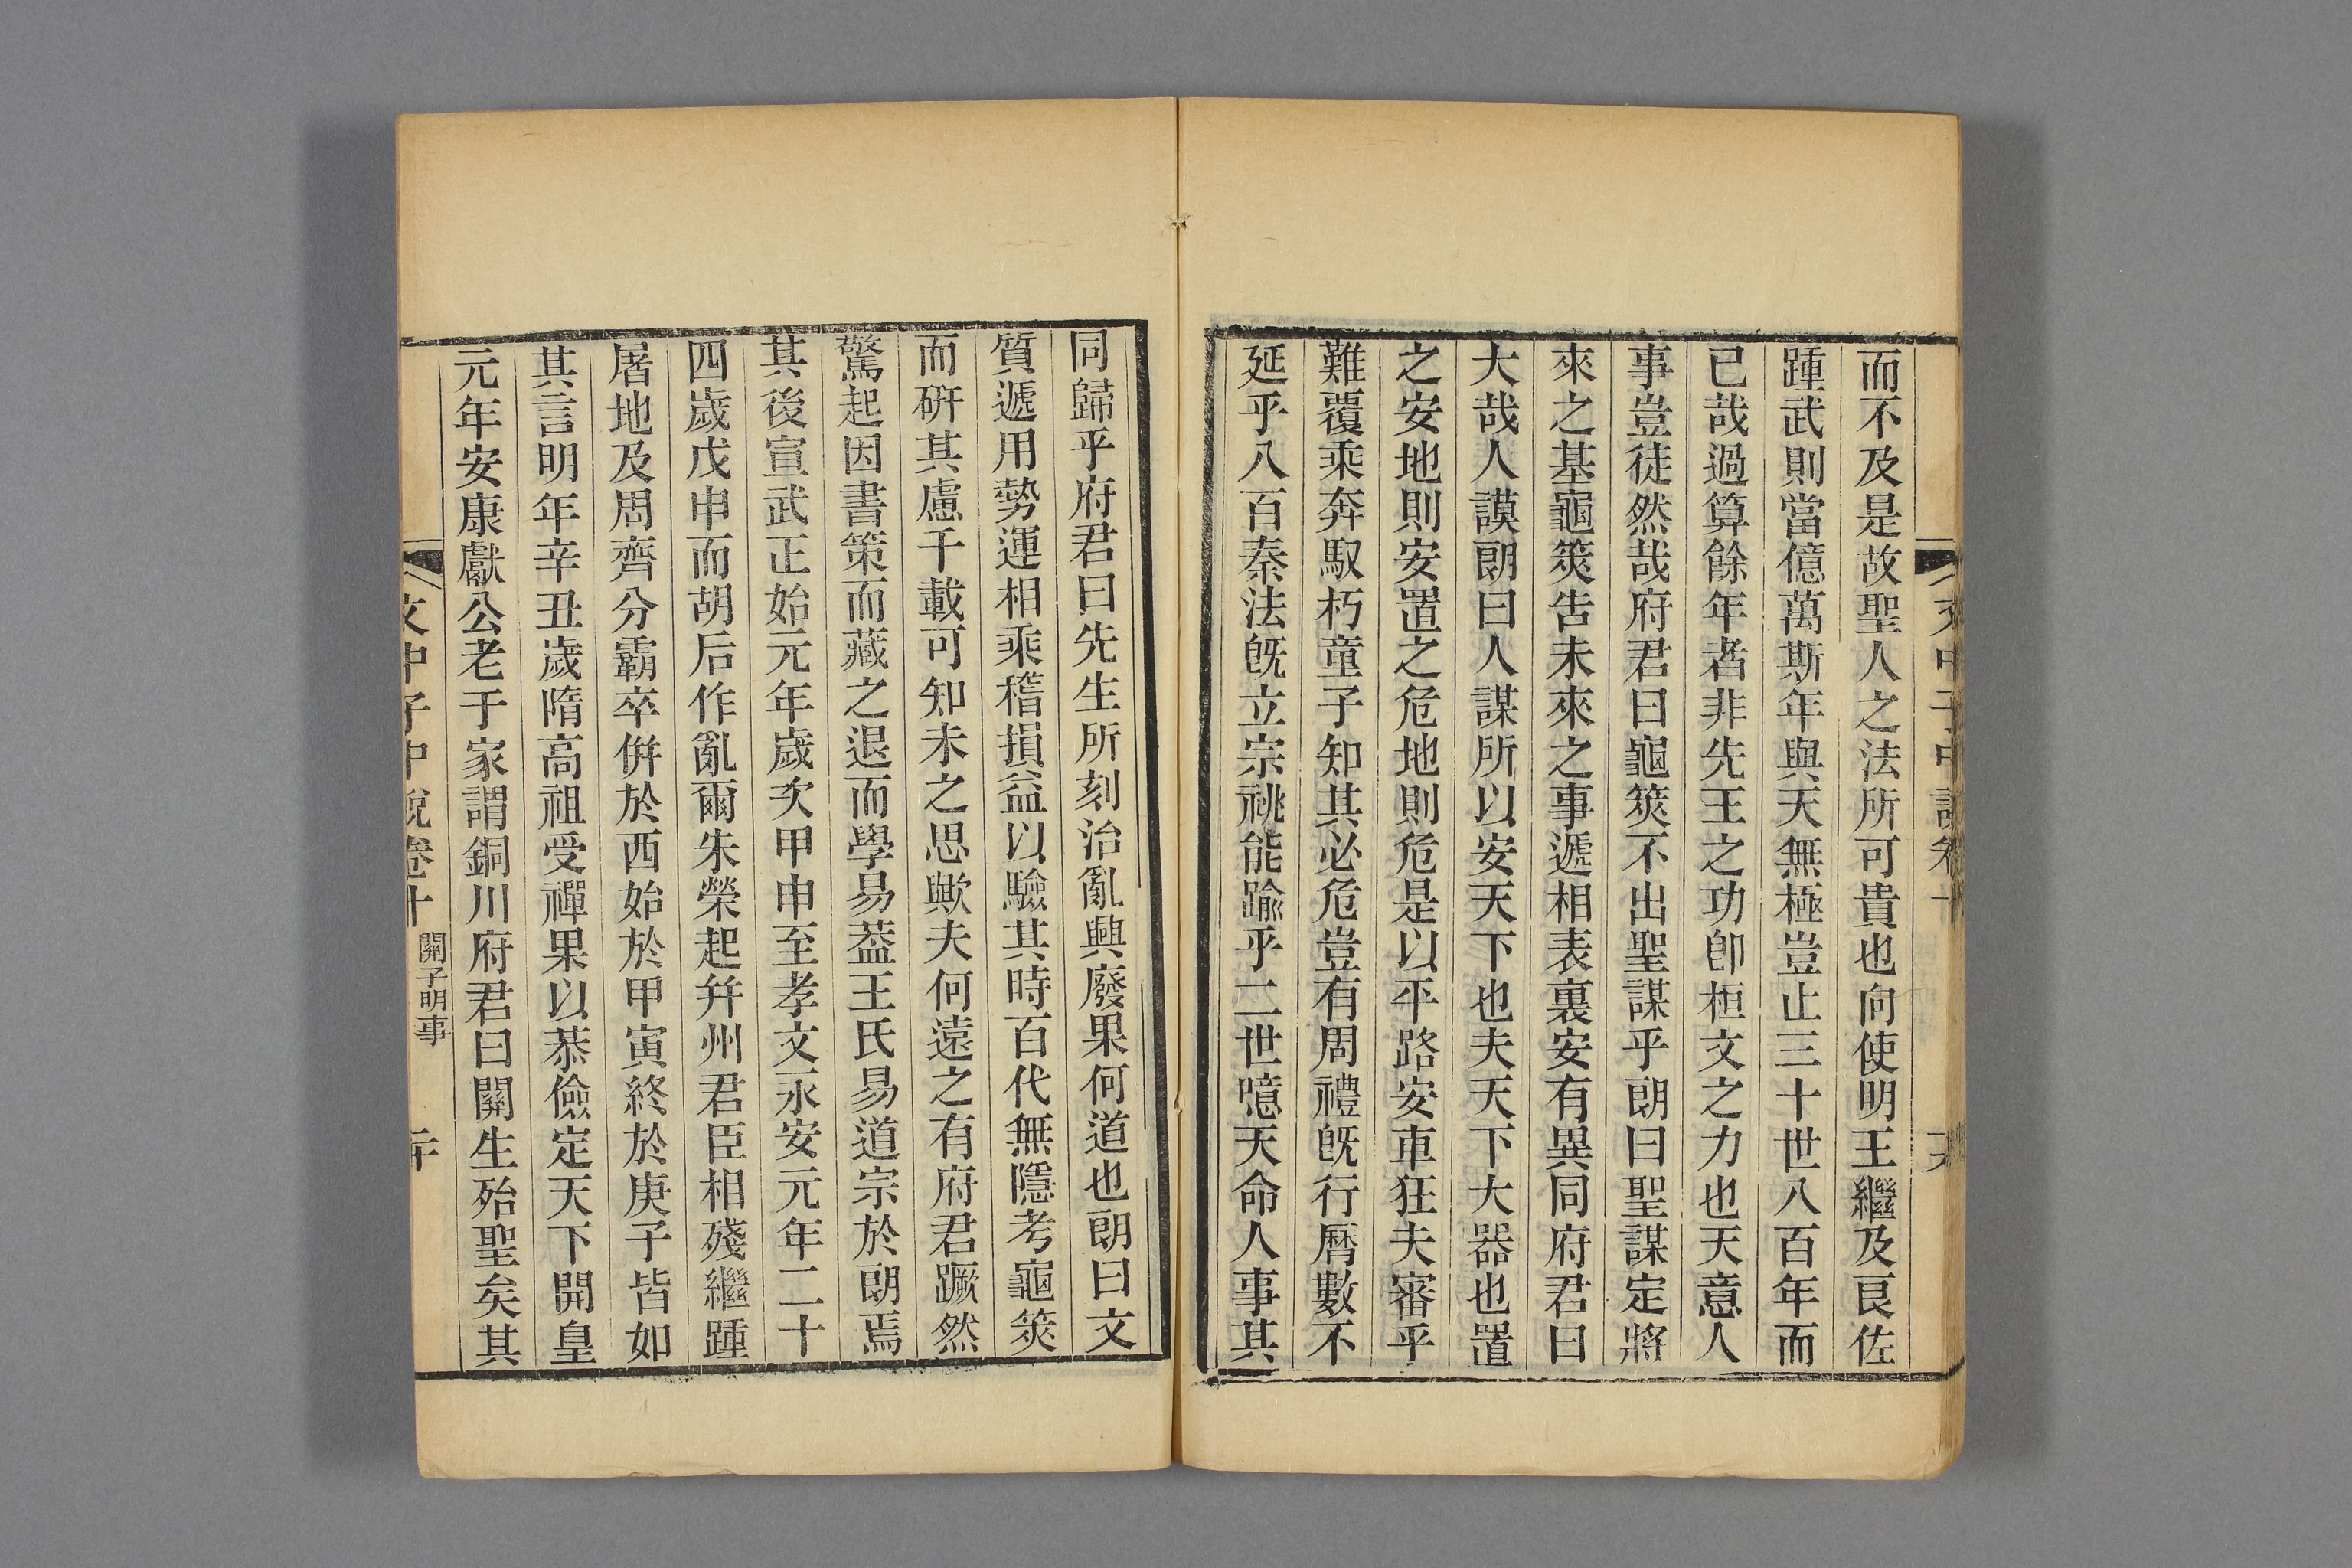 文中子中說卷十
而不及是故聖人之法所可貴也向使明王繼及良佐
踵武則當億萬斯年與天無極豈止三十世八百年而
已哉過算餘年者非先王之功卽桓文之力也天意人
事豈徒然哉府君曰龜筴不出聖謀乎朗曰聖謀定將
來之基龜筴告未來之事遞相表裏安有異同府君曰
大哉人謨朗曰人謀所以安天下也夫天下大器也置
之安地則安置之危地則危是以平路安車狂夫審乎
難覆乘奔馭朽童子知其必危豈有周禮旣行曆數不
延乎八百秦法旣立宗祧能踰乎二世噫天命人事其
同歸乎府君曰先生所刻治亂興廢果何道也朗曰文
質遞用勢運相乘稽損益以驗其時百代無隱考龜筴
而硏其慮千載可知未之思歟夫何遠之有府君蹶然
驚起因書策而藏之退而學易葢王氏易道宗於朗焉
其後宣武正始元年歲次甲申至孝文永安元年二十
四歲戊申而胡后作亂爾朱榮起幷州君臣相殘繼踵
屠地及周齊分霸卒併於西始於甲寅終於庚子皆如
其言明年辛丑歲隋高祖受禪果以恭儉定天下開皇
元年安康獻公老于家謂銅川府君曰關生殆聖矣其
文中子中說卷十 關子明事 二十